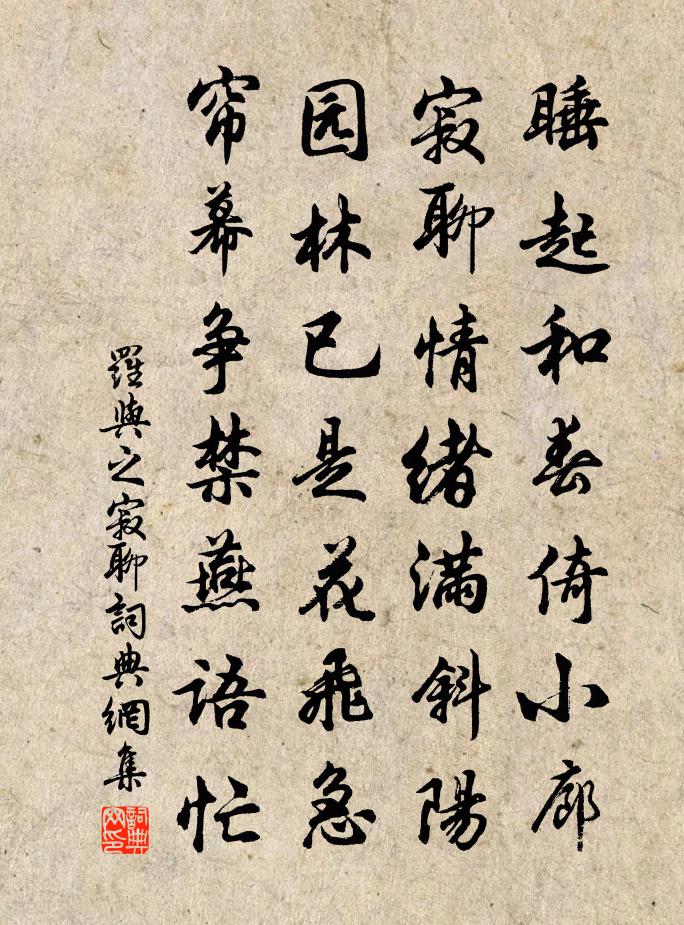 睡起和春倚小廊
寂聊情绪满斜陽
园林已是花飛急
帘幕争禁燕語忙
羅與之寂聊詞典網集
詞典网印